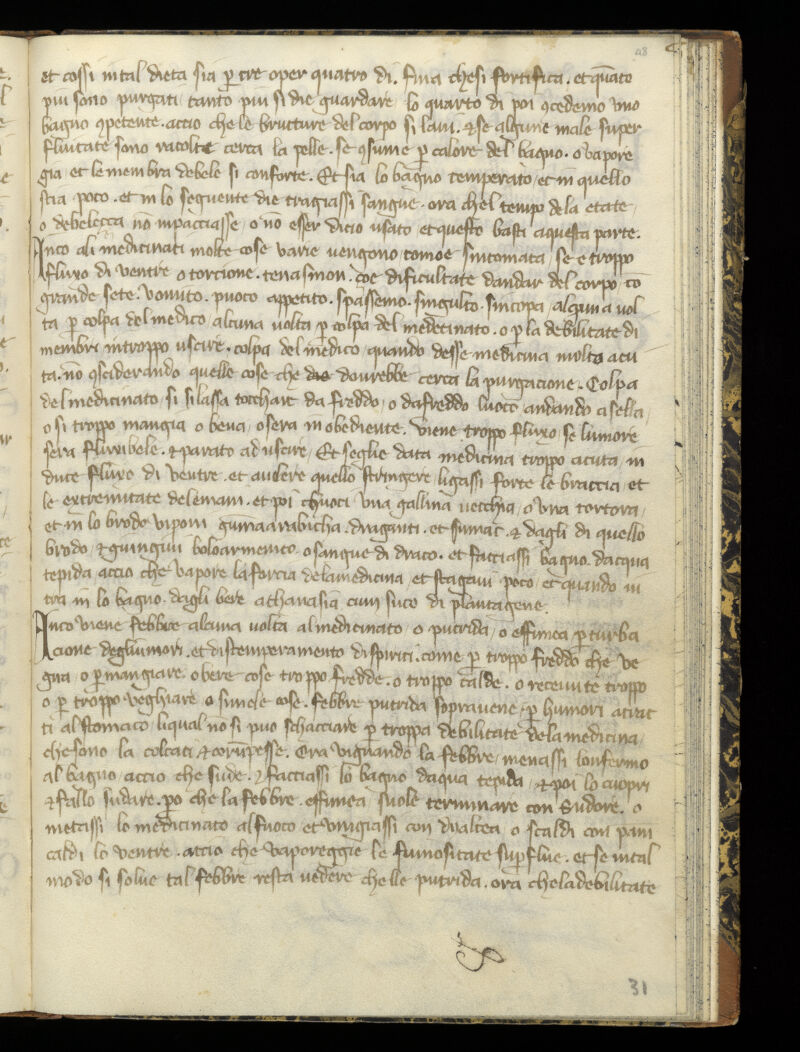 48
et cossi in tal dieta sia ꝑ tre o per quatro di. fina che si fortifica. et quāto
piu sono purgati tanto piu si die guardare lo quarto di poi ꝯcedemo uno
bagno ꝯpetente. accio che le brutture del corpo si laui. & se alcune male super
fluitate sono racolte cerca la pelle. se ꝯsume ꝑ calore del bagno. o vapore
gia et le membra debele si conforte. Et sia lo bagno temperato / et in quello
stia poco. et in lo sequente die tragiassi sangue. ora chel tempo dela etate /
o debelecca nō inpacciasse / o nō esser dicio usato et questo basti a questa parte.
Anco ali medicinati molte cose varie uengono / como e sintomata / se e troppo
fluxo di ventre o torcione. tenasmon. coe dificultate dandar del corpo / cō
grande sete. vomito. puoco appetito. spassemo. singulto. sincopa / alcuna uol
ta ꝑ colpa del medico / alcuna uolta ꝑ colpa del medecinato. o ꝑ la debilitate di
membri in troppo uscire. colpa del medico quando desse medicina molto acu
ta. nō ꝯsiderando quelle cose che dourebbe cerca la purgacione. Colpa
del medicinato / si si lassa tocchare da freddo / o da freddo luoco andando a sella /
o si troppo mangia o beua / o sera in obediente. viene troppo fluxo se lumore
sera fluxibele. & parato ad uscire / Et se gli e data medicina troppo acuta / in
duce fluxo di ventre. et a uolere quello stringere ligassi forte le braccia / et
le extremitate dele mani. et poi chuoci una gallina uecchia / o una tortora /
et in lo brodo ui poni gūma arabicha. draganti. et sumac. & dagli di quello
brodo / & giungiui boloarmenico. o sangue di draco. et facciassi bagno dacqua
tepida accio che vapore la forcia dela medicina / et stagaui poco / et quando in
tra in lo bagno. dagli bere athanasia cum suco di plantagene.
Anco viene febbre alcuna uolta al medicinato o putrida / o effimea ꝑ turba
cione degliumori. et distemperamento di spiriti. come ꝑ troppo freddo che ve
gna / o ꝑ mangiare. o bere cose troppo fredde. o troppo calde. o receuite troppo
o ꝑ troppo veghiare o simele cose. febbre putrida soprauene / ꝑ humori atrat
ti al stomaco / li qual nō si puo schacciare ꝑ troppa debilitate dela medicina /
che sono la colcati & corūpesse. Ora vignando la febbre / menassi lonfermo
al bagno accio che sude. & facciassi lo bagno daqua tepida / & poi lo cuopri
& fallo sudare. ꝑo che la febbre effimea suole terminare con sudore. o
metassi lo medicinato al fuoco et ungiassi con dyaltea / o scaldi con pani
caldi lo ventre. accio che vaporeggie le fumositate suꝑflue. et se in tal
modo si solue tal febbre resta uedere chelle putrida. ora che la debilitate
31